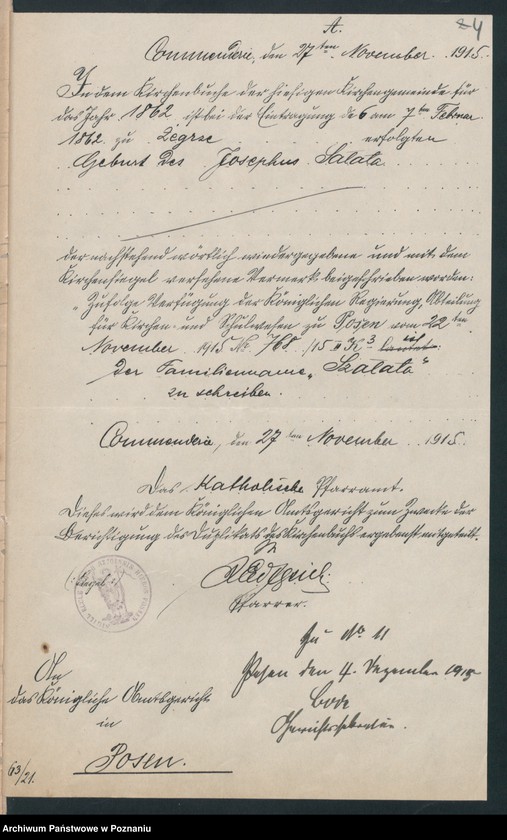 A.
24
Commenderie, den 27 ten November 1915.
In dem Kirchenbuche der hiesigen Kirchengemeinde für
das Jahr 1862 ist bei der Eintragung No 6 am 7 ten Februar
1862 zu Zegrze erfolgten
Geburt des Josephus Salata
der nachstehend wörtlich wiedergegebene und mit dem
Kirchensiegel versehene Vermerk beigeschrieben worden:
„Zufolge Verfügung der Königlichen Regierung, Abteilung
für Kirchen- und Schulwesen zu Posen vom 22 ten
November 1915 No 768 /15 II K 3
der Familienname „Szalata“
zu schreiben.
Commenderie, den 27 ten November 1915.
Das Katholische Pfarramt.
Dieses wird dem Königlichen Amtsgericht zum Zwecke der
Berichtigung des Duplikats des Kirchenbuchs ergebenst mitgeteilt.
(Siegel)
Pfarrer.
Zu No 11
Posen den 4. Dezember 1915
Bode
Gerichtssekretär.
An
das Königliche Amtsgericht
in
Posen.
63/21.
Archiwum Państwowe w Poznaniu